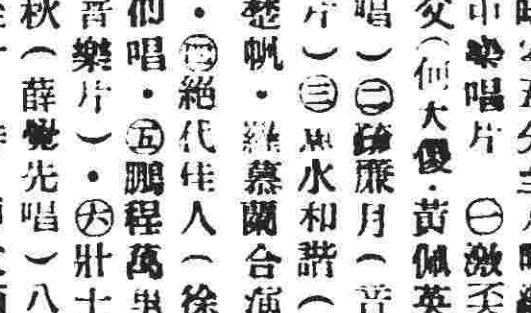 唱片 ㊀激
交（何大傻·黃佩英
唱）㊁簾月（音
片）㊂魚水和諧（
楚帆·羅慕蘭合演
·㊃絕代佳人（徐
們唱·㊄鵬程萬里
音樂片）·㊅壯士
秋（薛覺先唱）八